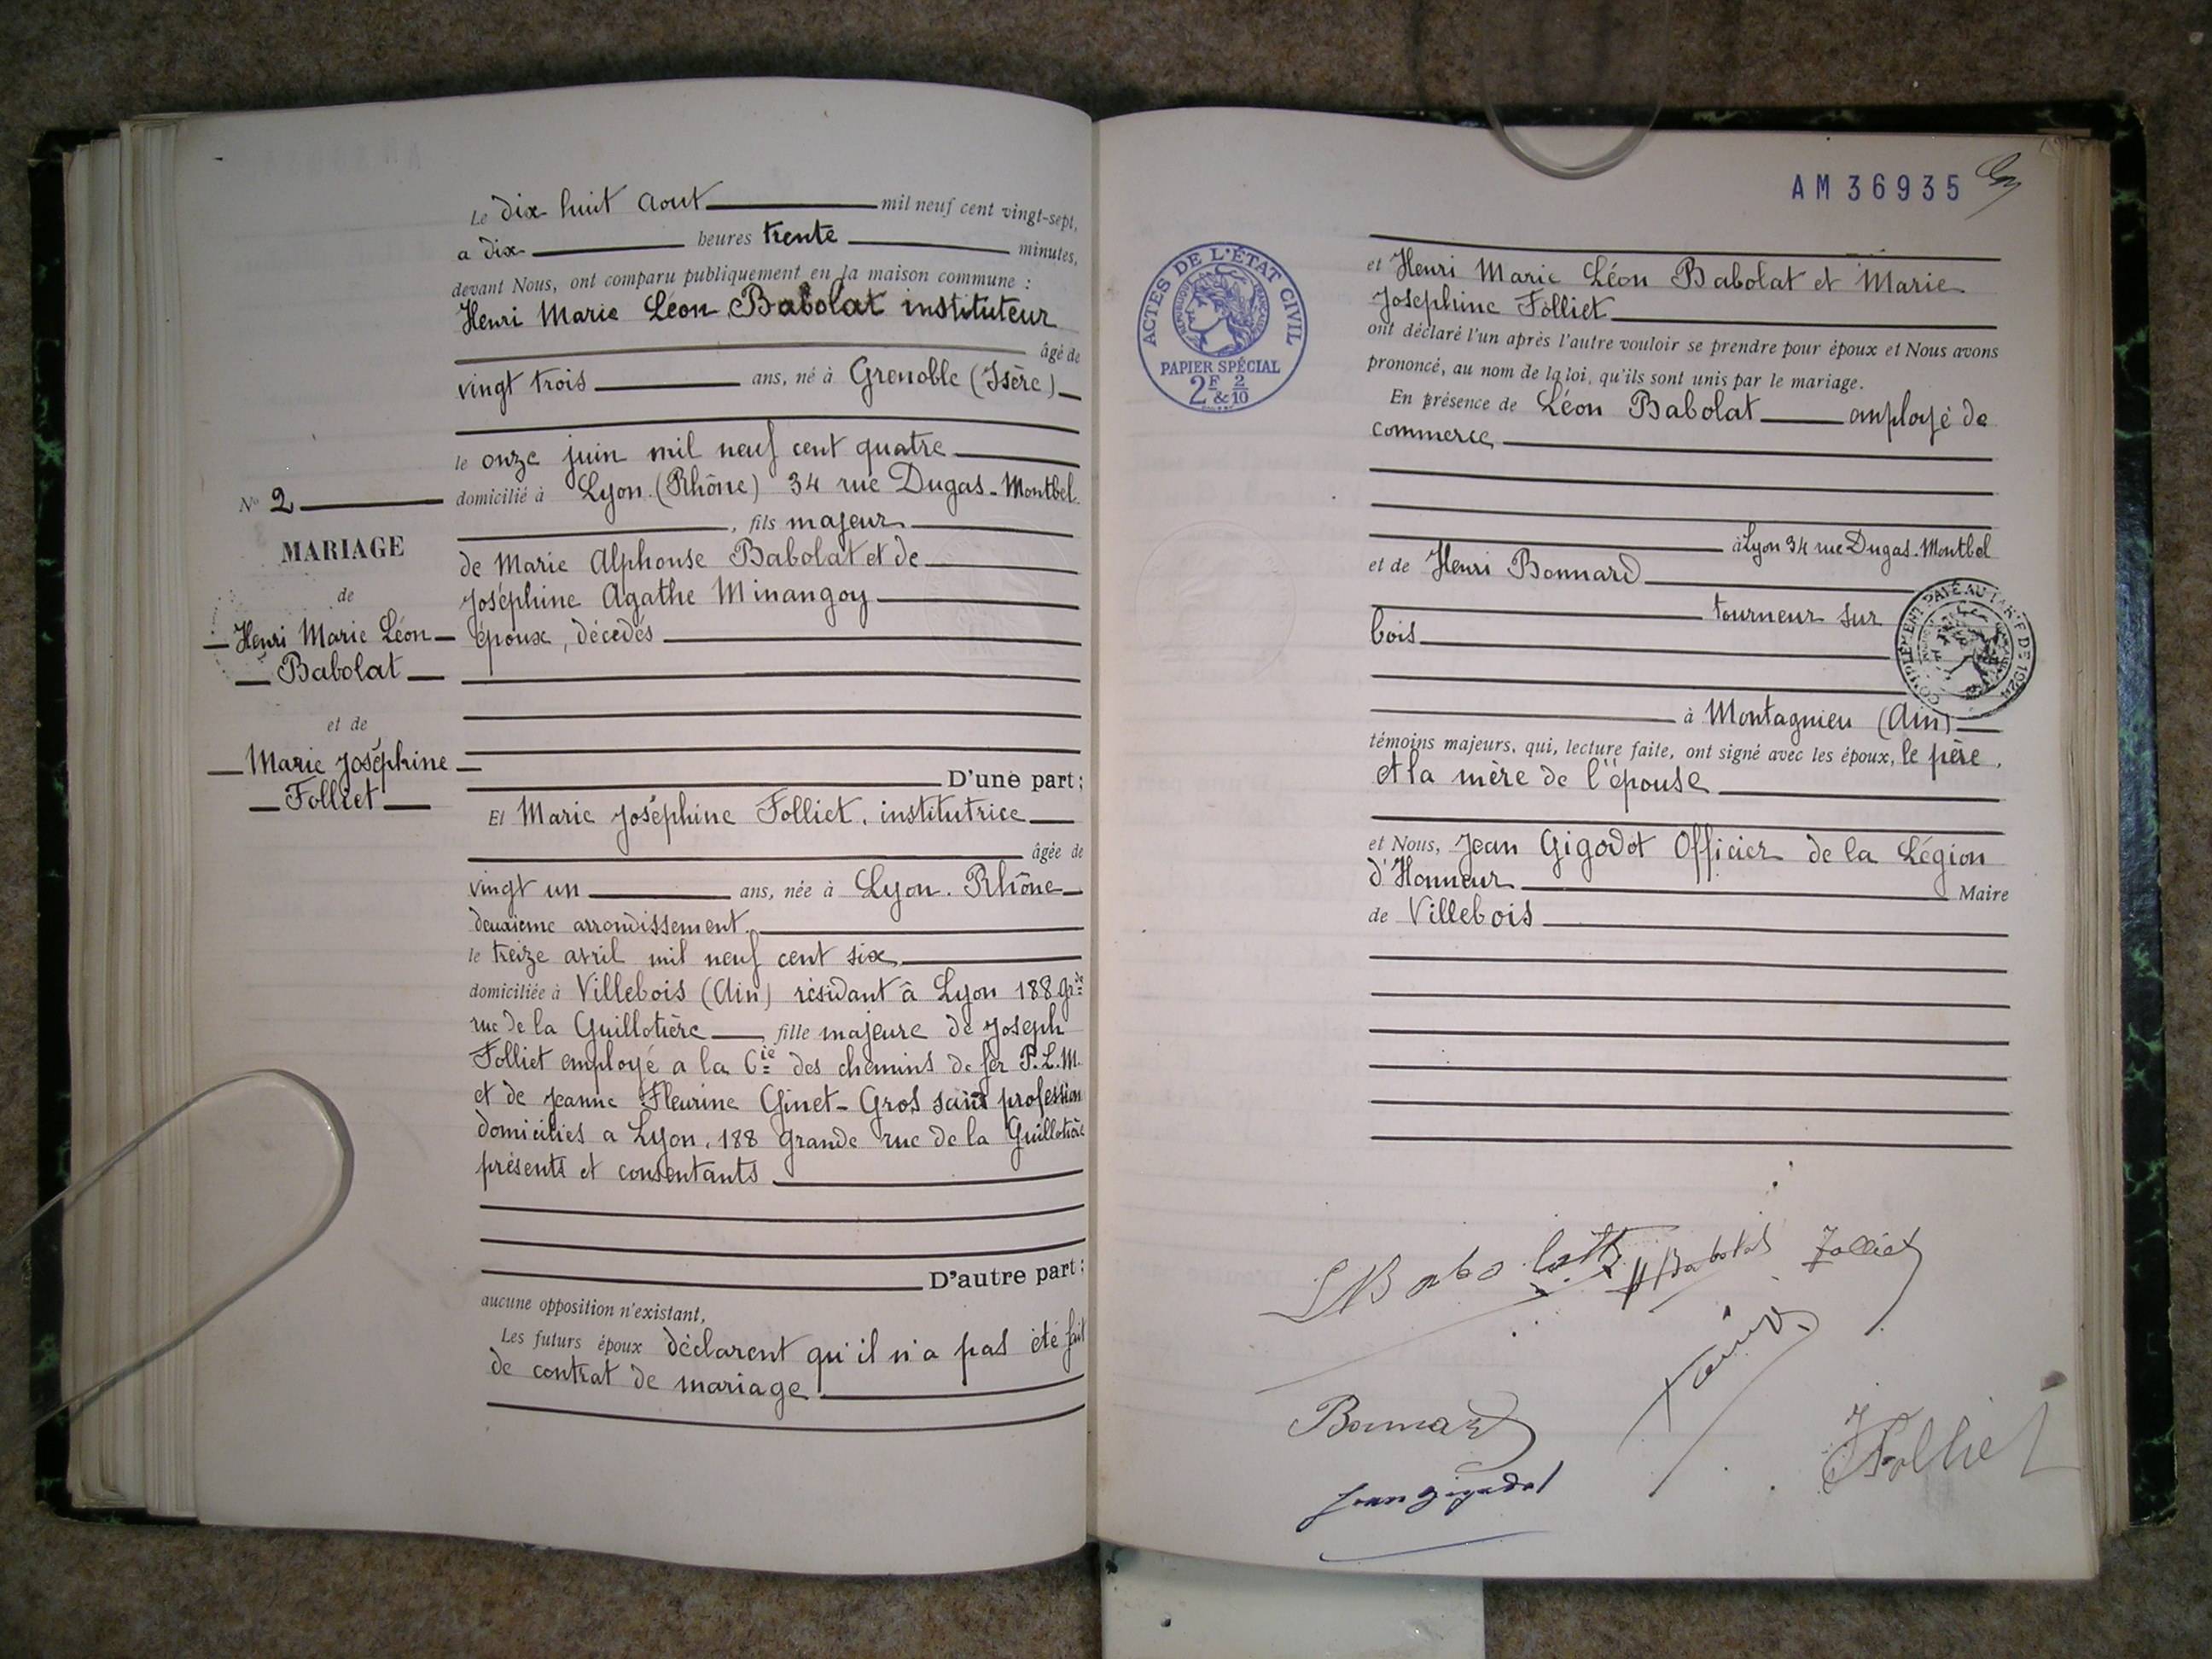 Le dix huit Aout mil neuf cent vingt-sept,
a dix heures trente minutes,
devant Nous, ont comparu publiquement en la maison commune :
Henri Marie Léon Babolat instituteur
âgé de
vingt trois ans, né à Grenoble (Isère)
le onze juin mil neuf cent quatre
domicilié à Lyon (Rhône) 34 rue Dugas-Montbel
, fils majeur
de Marie Alphonse Babolat et de
Joséphine Agathe Minangoy
époux, décédés
D'une part;
Et Marie Joséphine Folliet, institutrice
âgée de
vingt un ans, née à Lyon. Rhône
deuxième arrondissement.
le treize avril mil neuf cent six
domiciliée à Villebois (Ain) résidant à Lyon 188 grde
rue de la Guillotière, fille majeure de Joseph
Folliet employé a la Cie des chemins de fer P.L.M.
et de Jeanne Fleurine Ginet-Gros sans profession
domiciliés a Lyon, 188 Grande rue de la Guillotière
présents et consentants
D'autre part;
aucune opposition n'existant,
Les futurs époux déclarent qu'il n'a pas été fait
de contrat de mariage
No 2
MARIAGE
de
Henri Marie Léon
Babolat
et de
Marie Joséphine
Folliet
AM 36935
ACTES DE L'ÉTAT CIVIL
RÉPUBLIQUE FRANÇAISE
PAPIER SPÉCIAL
2F & 2/10
et Henri Marie Léon Babolat et Marie
Joséphine Folliet
ont déclaré l'un après l'autre vouloir se prendre pour époux et Nous avons
prononcé, au nom de la loi, qu'ils sont unis par le mariage.
En présence de Léon Babolat employé de
commerce
à Lyon 34 rue Dugas-Montbel
et de Henri Bonnard
tourneur sur
bois
COMPLÉMENT PAYÉ AU TARIF DE 1924
à Montagnieu (Ain)
témoins majeurs, qui, lecture faite, ont signé avec les époux, le père,
et la mère de l'épouse
et Nous, Jean Gigodot Officier de la Légion
d'Honneur Maire
de Villebois
H Babolat
Folliet
Bonnard
Jean Gigodot
J Folliet